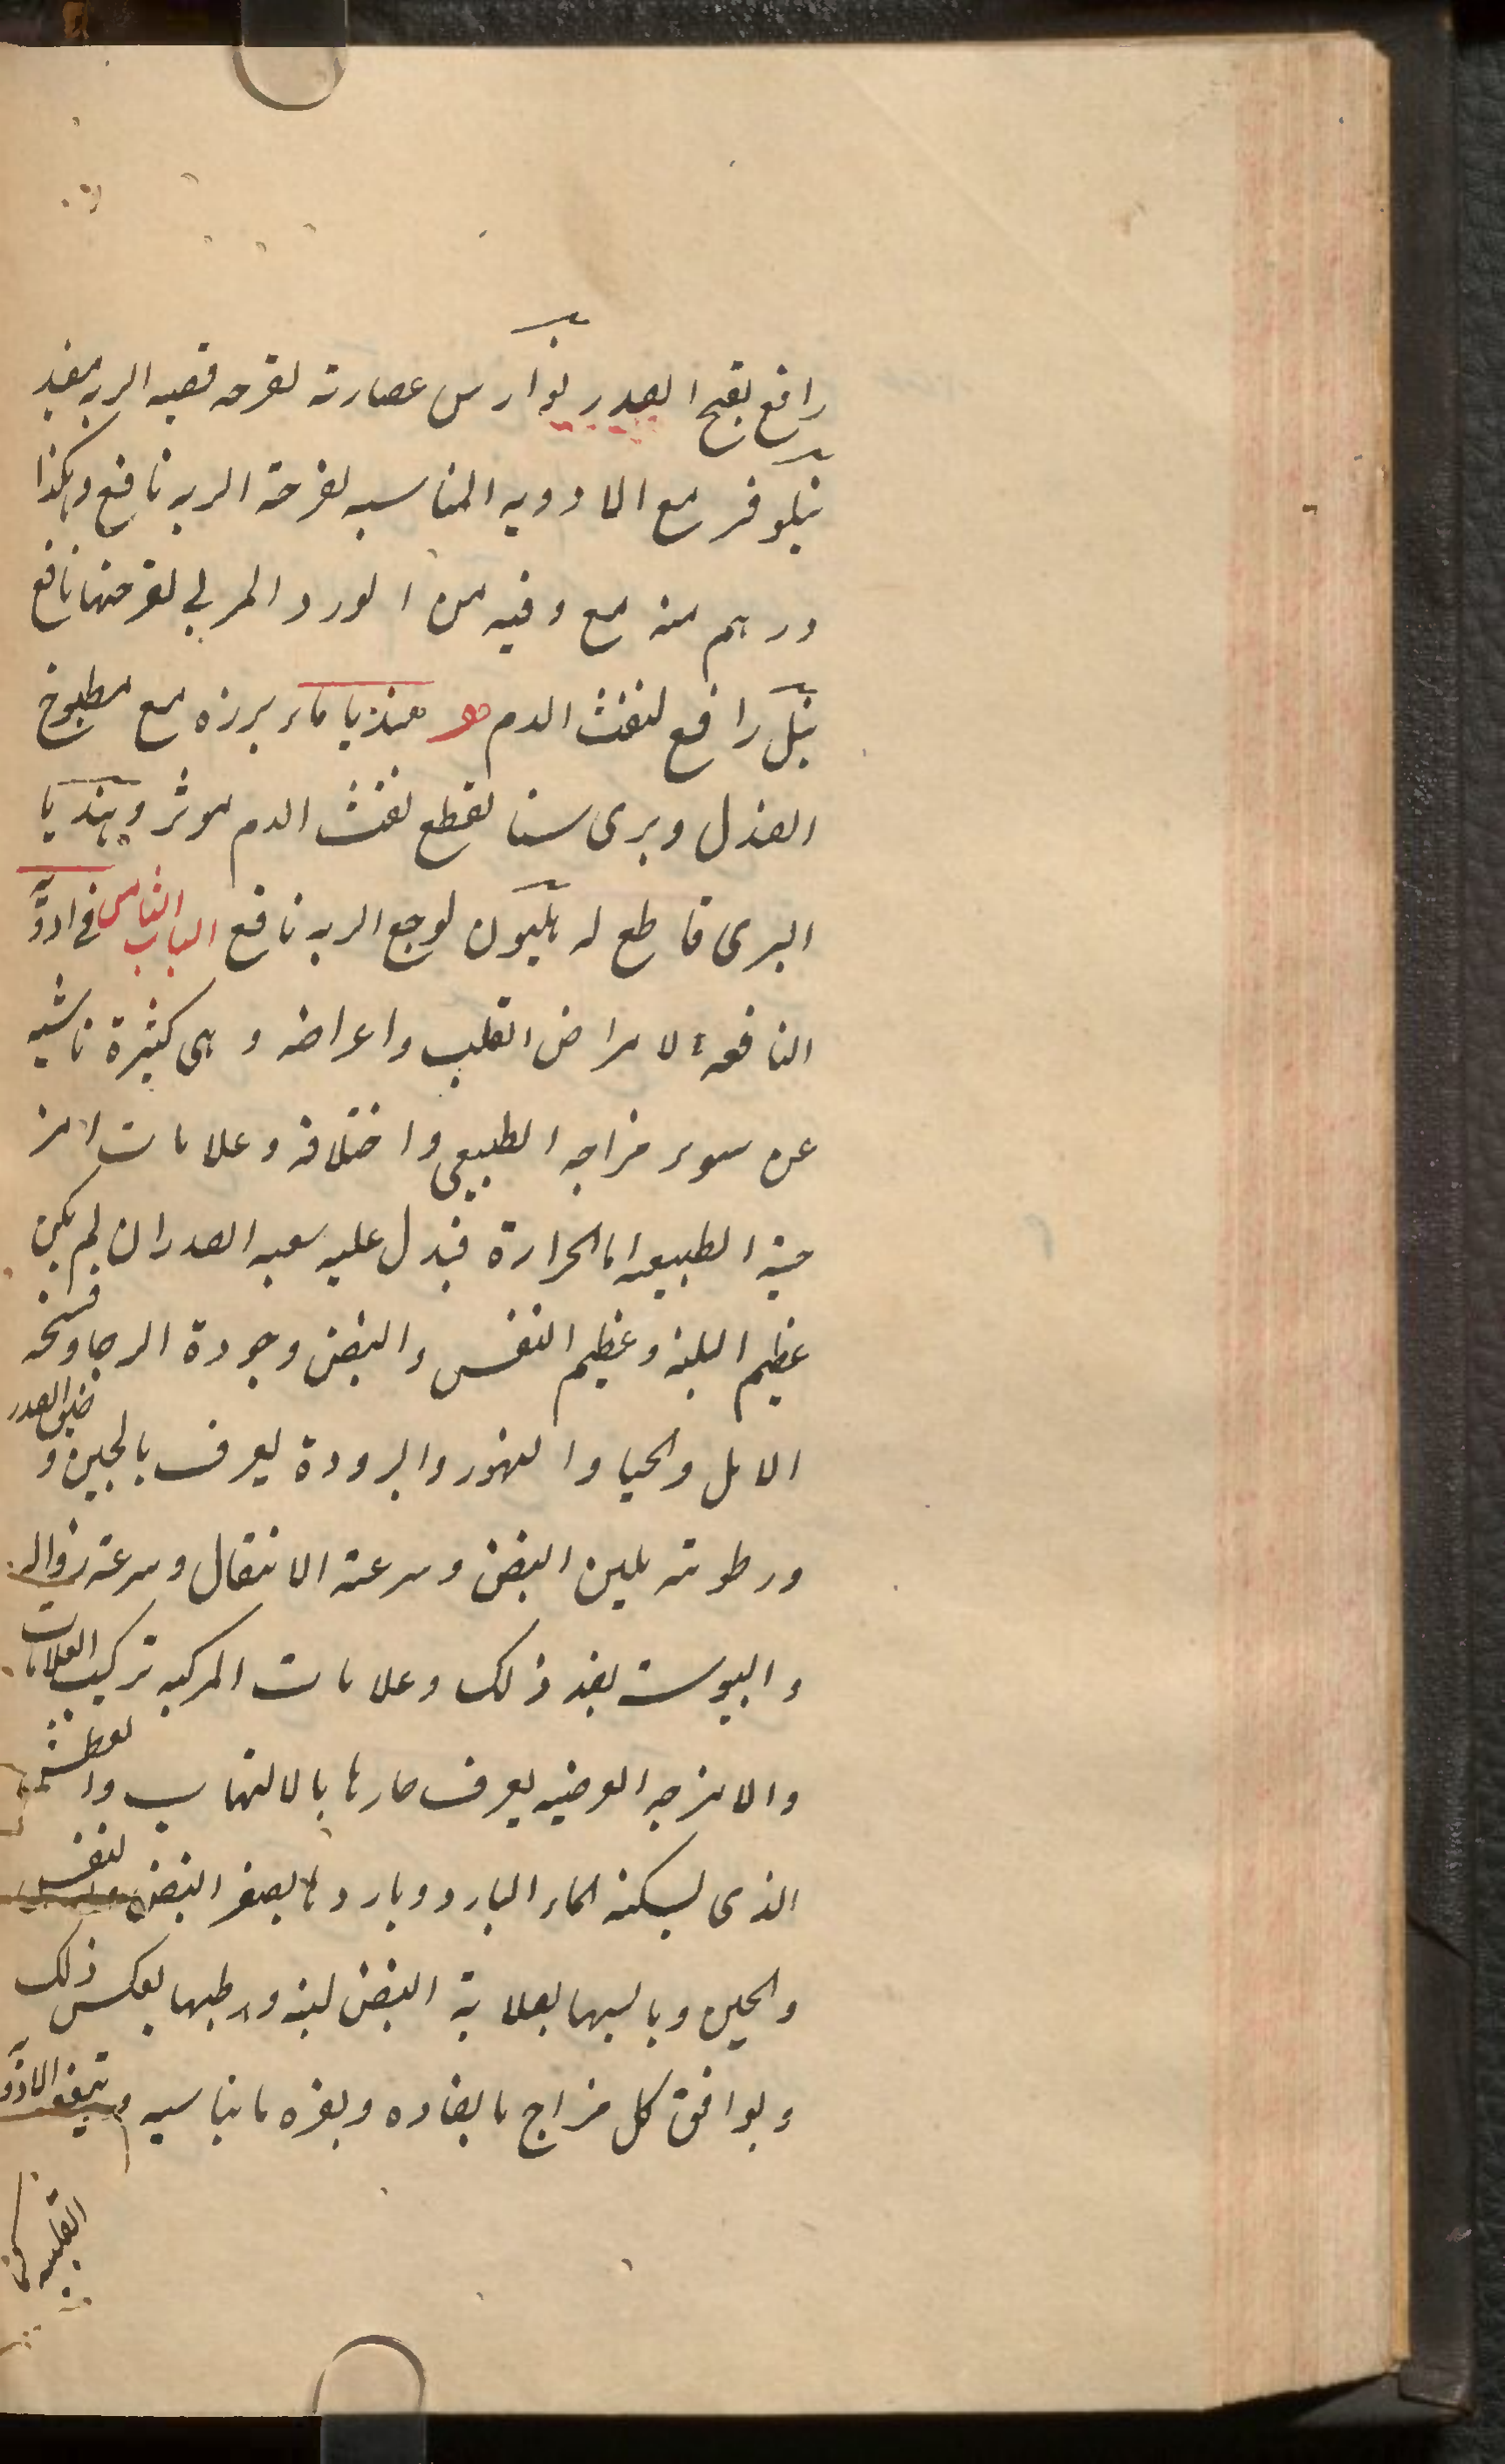 رافع بقيح الصدر نوارس عصارته لقرحه قصبه الريه مفيد
نيلوفر مع الادويه المناسبه لقرحة الريه نافع وهكذا
درهم منه مع وقيه من الورد المربي لقرحتها نافع
نيل رافع لنفث الدم هو هندبا ماء برزه مع مطبوخ
الصندل وبرى سنا لقطع نفث الدم موثر وهندبا
البرى قاطع له هليون لوجع الريه نافع الباب الثامن فى ادويه
النافعه لامراض القلب واعراضه وهى كثيرة ناشيه
عن سوء مزاجه الطبيعى واختلافه وعلامات امز
جيته الطبيعيه اما الحرارة فيدل عليه سعه الصدر ان لم يكن
عظيم البلينه وعظيم النفس والنبض وجودة الرجا وفسخه
الامل والحيا والتهور والبرودة يعرف بالجبن و ضيق الصدر
ورطوبته بلين النبض وسرعة الانتقال وسرعة زواله
واليبوسة بضد ذلك وعلامات المركبه تركيب العلامات
والامزجه العرضيه يعرف حارها بالالتهاب والعطش
الذى يسكنه الماء البارد وباردها بصغر النبض والنفس
والجبن ويابسها بصلابة النبض لينه ورطبها بعكس ذلك
ويوافق كل مزاج ما يضاده ويضره ما يناسبه وتنفع الادويه
القلبيه